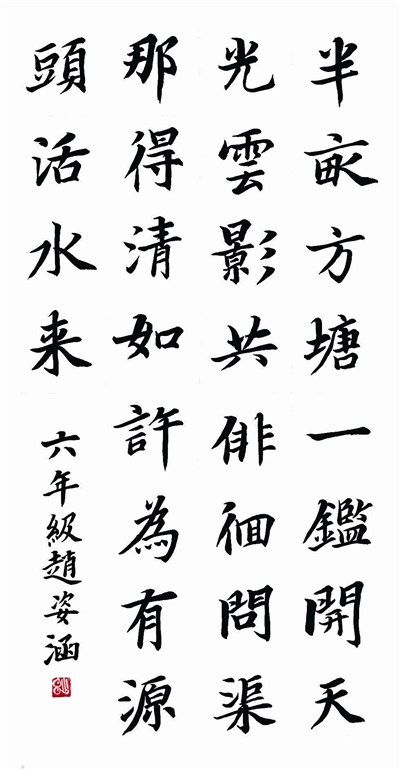 半畝方塘一鑑開天
光雲影共俳徊問渠
那得清如許為有源
頭活水来
六年級趙姿涵